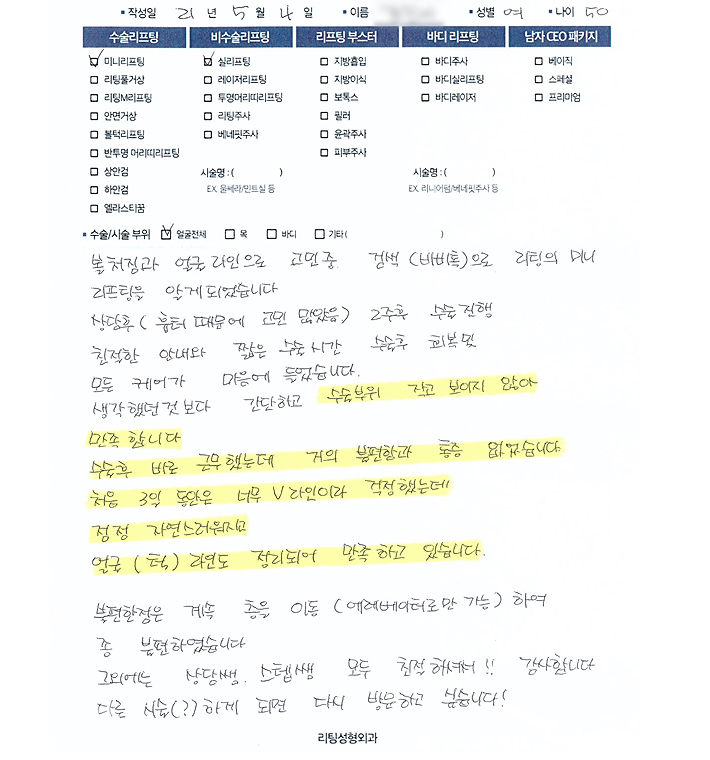 작성일 21 년 5 월 4 일 이름 성별 여 나이 50
수술리프팅 비수술리프팅 리프팅 부스터 바디 리프팅 남자 CEO 패키지
미니리프팅 실리프팅 지방흡입 바디주사 베이직
리팅풀거상 레이저리프팅 지방이식 바디실리프팅 스페셜
리팅M리프팅 투명머리띠리프팅 보톡스 바디레이저 프리미엄
안면거상 리팅주사 필러
볼턱리프팅 베네핏주사 윤곽주사
반투명 머리띠리프팅 피부주사
상안검 시술명 : ( ) 시술명 : ( )
하안검 EX. 울쎄라/민트실 등 EX. 리니어펌/베네핏주사 등
엘라스티꿈
수술/시술 부위 얼굴전체 목 바디 기타( )
볼처짐과 얼굴라인으로 고민중 검색 (바비톡)으로 리팅의 미니
리프팅을 알게되었습니다
상담후 ( 흉터 때문에 고민 많았음) 2주후 수술진행
친절한 안내와 짧은 수술시간 수술후 회복및
모든 케어가 마음에 들었습니다.
생각했던것보다 간단하고 수술부위 작고 보이지 않아
만족합니다
수술후 바로 근무했는데 거의 불편함과 통증 없었습니다
처음 3일 동안은 너무 V라인이라 걱정했는데
점점 자연스러워지고
얼굴 (턱) 라인도 정리되어 만족하고 있습니다.
불편한점은 계속 층을 이동 (에레베이터로만 가능) 하여
좀 불편하였습니다
그외에는 상담쌤. 스텝쌤 모두 친절하셔서!! 감사합니다
다른 시술(?)하게 되면 다시 방문하고 싶습니다!
리팅성형외과